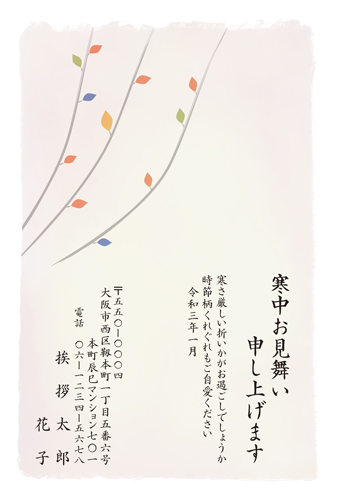 寒中お見舞い
申し上げます
寒さ厳しい折いかがお過ごしでしょうか
時節柄くれぐれもご自愛ください
令和三年一月
〒五五〇-〇〇〇四
大阪市西区靱本町一丁目五番六号
本町辰巳マンション七〇一
電話 〇六-一二三四-五六七八
挨拶太郎
花子